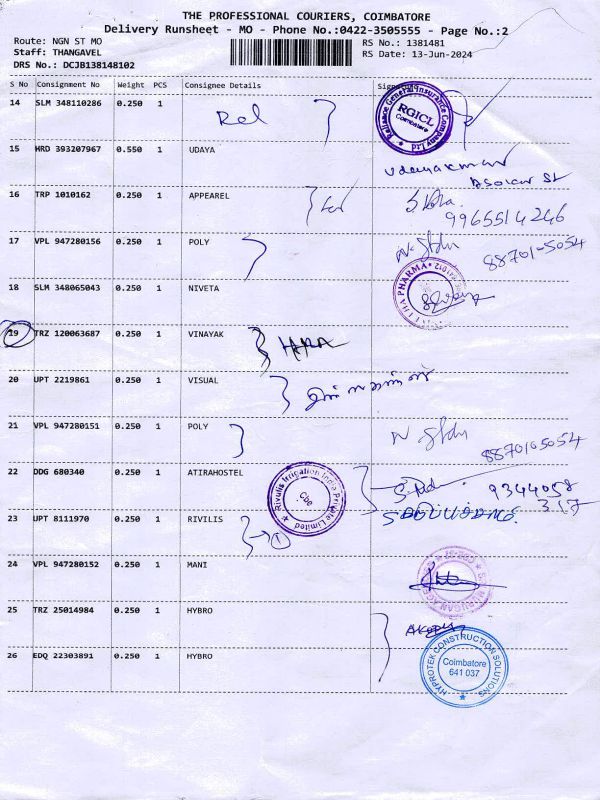 THE PROFESSIONAL COURIERS, COIMBATORE
Delivery Runsheet - MO - Phone No.:0422-3505555 - Page No.:2
Route: NGN ST MO
RS No.: 1381481
Staff: THANGAVEL
RS Date: 13-Jun-2024
DRS No.: DCJB138148102
S No Consignment No Weight PCS Consignee Details
14 SLM 348110286 0.250 1 Rel
Reliance General Insurance Company Ltd
RGICL
Coimbatore
15 HRD 393207967 0.550 1 UDAYA
Udayakumar
16 TRP 1010162 0.250 1 APPEAREL
9965514246
17 VPL 947280156 0.250 1 POLY
88701-5054
18 SLM 348065043 0.250 1 NIVETA
PHARMA
19 TRZ 120063687 0.250 1 VINAYAK
20 UPT 2219861 0.250 1 VISUAL
21 VPL 947280151 0.250 1 POLY
8870105054
22 DDG 680340 0.250 1 ATIRAHOSTEL
Rivulis Irrigation India Private Limited
Cbe
9344058
317
23 UPT 8111970 0.250 1 RIVILIS
1
24 VPL 947280152 0.250 1 MANI
25 TRZ 25014984 0.250 1 HYBRO
26 EDQ 22303891 0.250 1 HYBRO
HYPROTEK CONSTRUCTION SOLUTIONS
Coimbatore
641 037